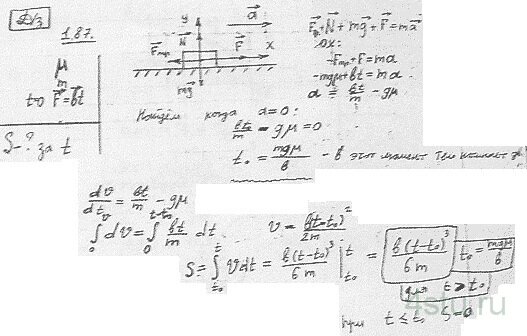 Д/з
1.87.
μ
m
t=0 F⃗=b⃗t
S-? за t
y a⃗
N⃗
F⃗тр. F⃗ x
mg⃗
F⃗тр+N⃗+mg⃗+F⃗=ma⃗
ox:
-Fтр+F=ma
-mgμ+bt=ma
a = bt/m - gμ
Найдём когда a=0:
bt₀/m - gμ=0
t₀ = mgμ/b - в этот момент тело начинает дв
dv/dt = bt/m - gμ
∫₀ᵛ dv=∫₀^(t-t₀) bt/m dt v = b(t-t₀)²/2m
S=∫_(t₀)^t vdt = b(t-t₀)³/6m |_(t₀)^t = b(t-t₀)³/6m t₀=mgμ/b
для t > t₀
при t ≤ t₀ S=0
4stu.ru